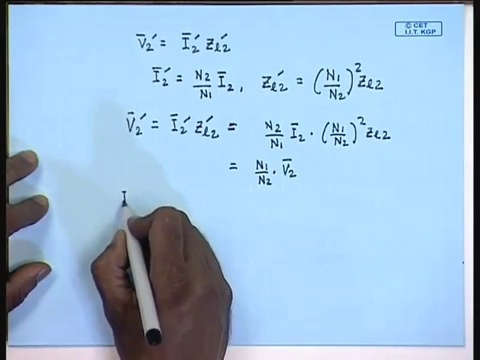 © CET
I.I.T. KGP
V̄₂′ = Ī₂′ Zₑ₂′
Ī₂′ = N₂/N₁ Ī₂, Zₑ₂′ = (N₁/N₂)² Zₑ₂
V̄₂′ = Ī₂′ Zₑ₂′ = N₂/N₁ Ī₂ · (N₁/N₂)² Zₑ₂
= N₁/N₂ · V̄₂
I